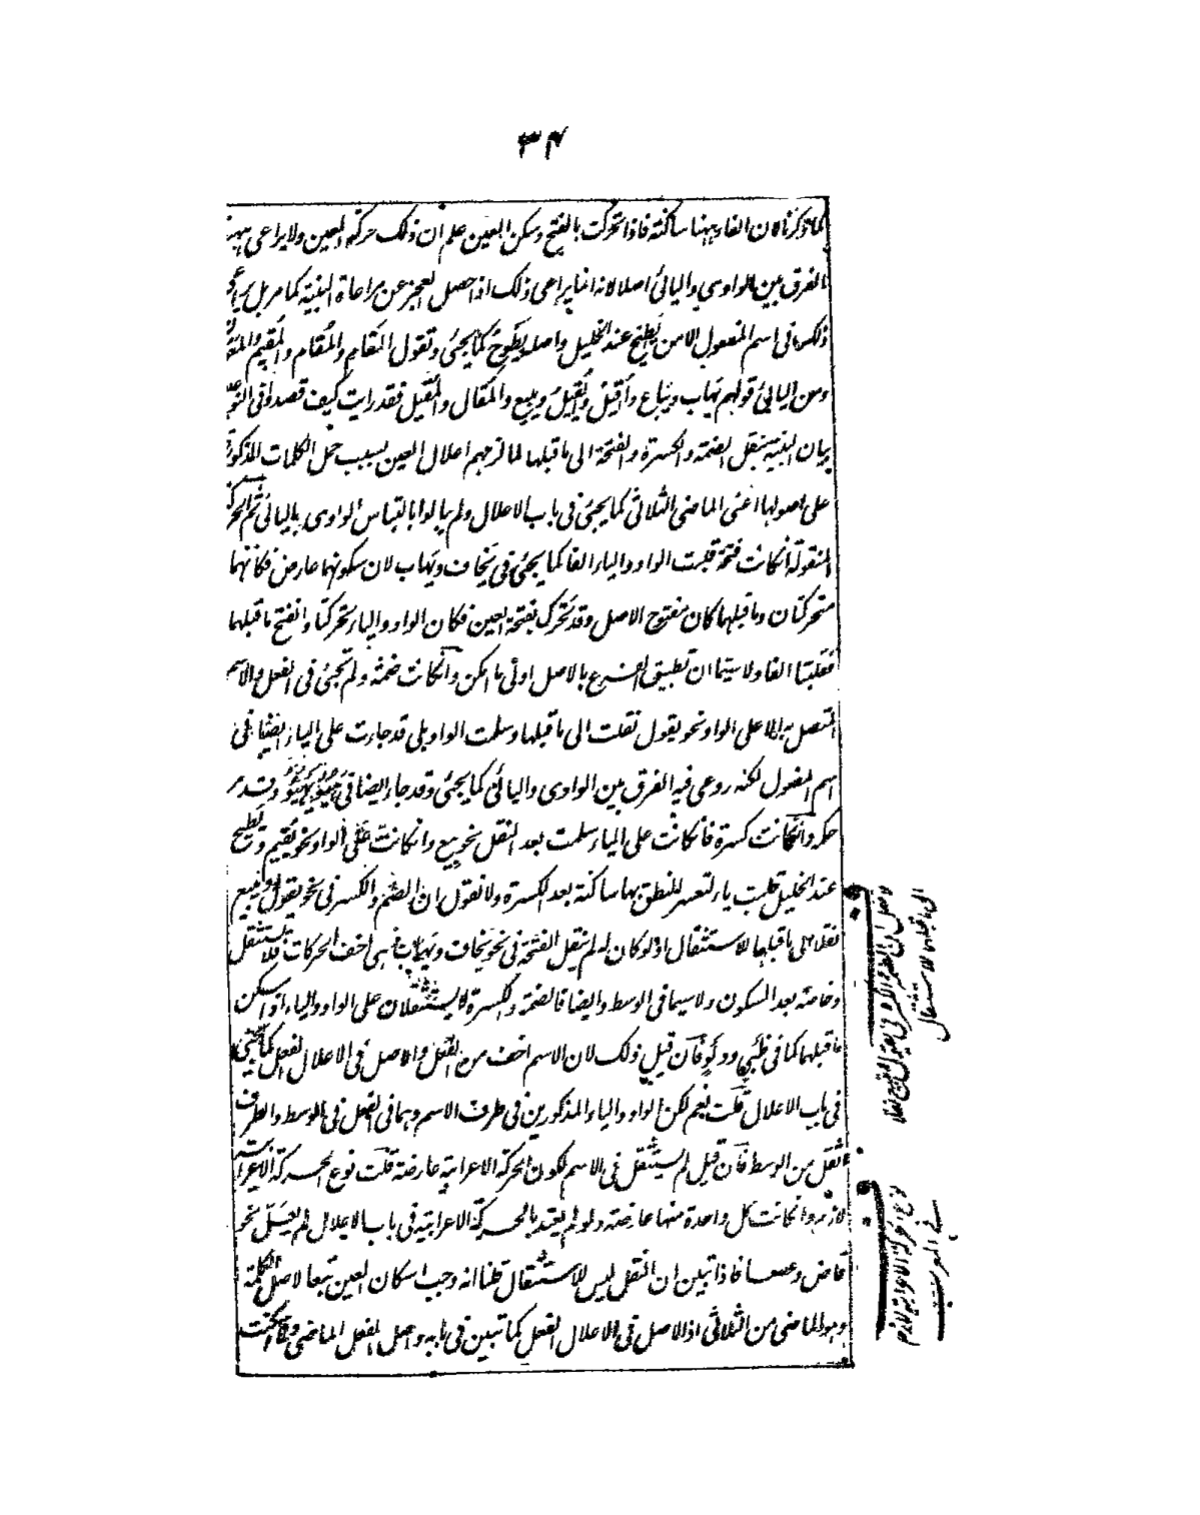 ٣٤
كما ذكرناه ان الفاء ههنا ساكنة فاذا تحركت بالفتح وسكن العين علم ان ذلك حركة العين ولا يراعى ههنا
الفرق بين الواوي واليائي اصلا لانه انما يراعى ذلك اذا حصل العجز عن مراعاة البنية كما مر بل يراعى
ذلك في اسم المفعول الا من يطيح عند الخليل واصله يطوح كما يجئ وتقول المقام والمقام والمقيم
ومن اليائي قولهم يهاب ويباع وأقيل ويقيل ويبيع والمقال والمقيل فقد رايت كيف قصدوا في النوعين
بيان البنية بنقل الضمة والكسرة والفتحة الى ما قبلها لما لزمهم اعلال العين بسبب حمل الكلمات المذكورة
على اصولها اعنى الماضي الثلاثي كما يجئ في باب الاعلال ولم يبالوا بالتباس الواوى باليائي ثم الحركة
المنقولة انكانت فتحة قلبت الواو والياء الفا كما يجئ في يخاف ويهاب لان سكونهما عارض فكانهما
متحركتان وما قبلهما كان مفتوح الاصل وقد تحرك بفتحة العين فكان الواو والياء تحركتا وانفتح ما قبلهما
فقلبتا الفا ولا سيما ان تطبيق الفرع بالاصل اولى ما امكن وانكانت ضمة ولم تجئ في الفعل والاسم
المتصل به الا على الواو نحو يقول نقلت الى ما قبلها وسلمت الواو بلى قد جاءت على الياء ايضا في
اسم المفعول لكنه روعى فيه الفرق بين الواوى واليائي كما يجئ وقد جاء ايضا في وقد مر
حكمه وانكانت كسرة فانكانت على الياء سلمت بعد النقل نحو يبيع وانكانت على الواو نحو يقيم ويطيح
عند الخليل قلبت ياء لتعسر النطق بها ساكنة بعد الكسرة ولا نقول ان الضم والكسر في نحو يقول ويبيع
نقلا الى ما قبلها للاستثقال اذ لو كان له لم ينقل الفتحة في نحو يخاف ويهاب فهى اخف الحركات فلا يستثقل
وخاصة بعد السكون ولا سيما في الوسط وايضا فالضمة والكسرة لا يستثقلان على الواو والياء اذا سكن
ما قبلهما كما في ظبي ودلو فان قيل ذلك لان الاسم اخف من الفعل والاصل في الاعلال الفعل كما يجئ
في باب الاعلال قلت نعم لكن الواو والياء المذكورين في طرف الاسم وهما في الفعل في الوسط والطرف
اثقل من الوسط فان قيل لم يستثقل في الاسم لكون الحركة الاعرابية عارضة قلت نوع الحركة الاعرابية
لازم وانكانت كل واحدة منها عارضة ولو لم يعتد بالحركة الاعرابية في باب الاعلال لم يعل نحو
قاض وعصا فاذا تبين ان النقل ليس للاستثقال قلنا انه وجب اسكان العين تبعا لاصل الكلمة
وهو الماضي من الثلاثي اذ الاصل في الاعلال الفعل كما تبين في بابه واصل الفعل الماضي
لا نقول ان الضم والكسر في نحو يقول ويبيع نقلا
الى ما قبلها للاستثقال
نوع الحركة الاعرابية لازم
في المعرب